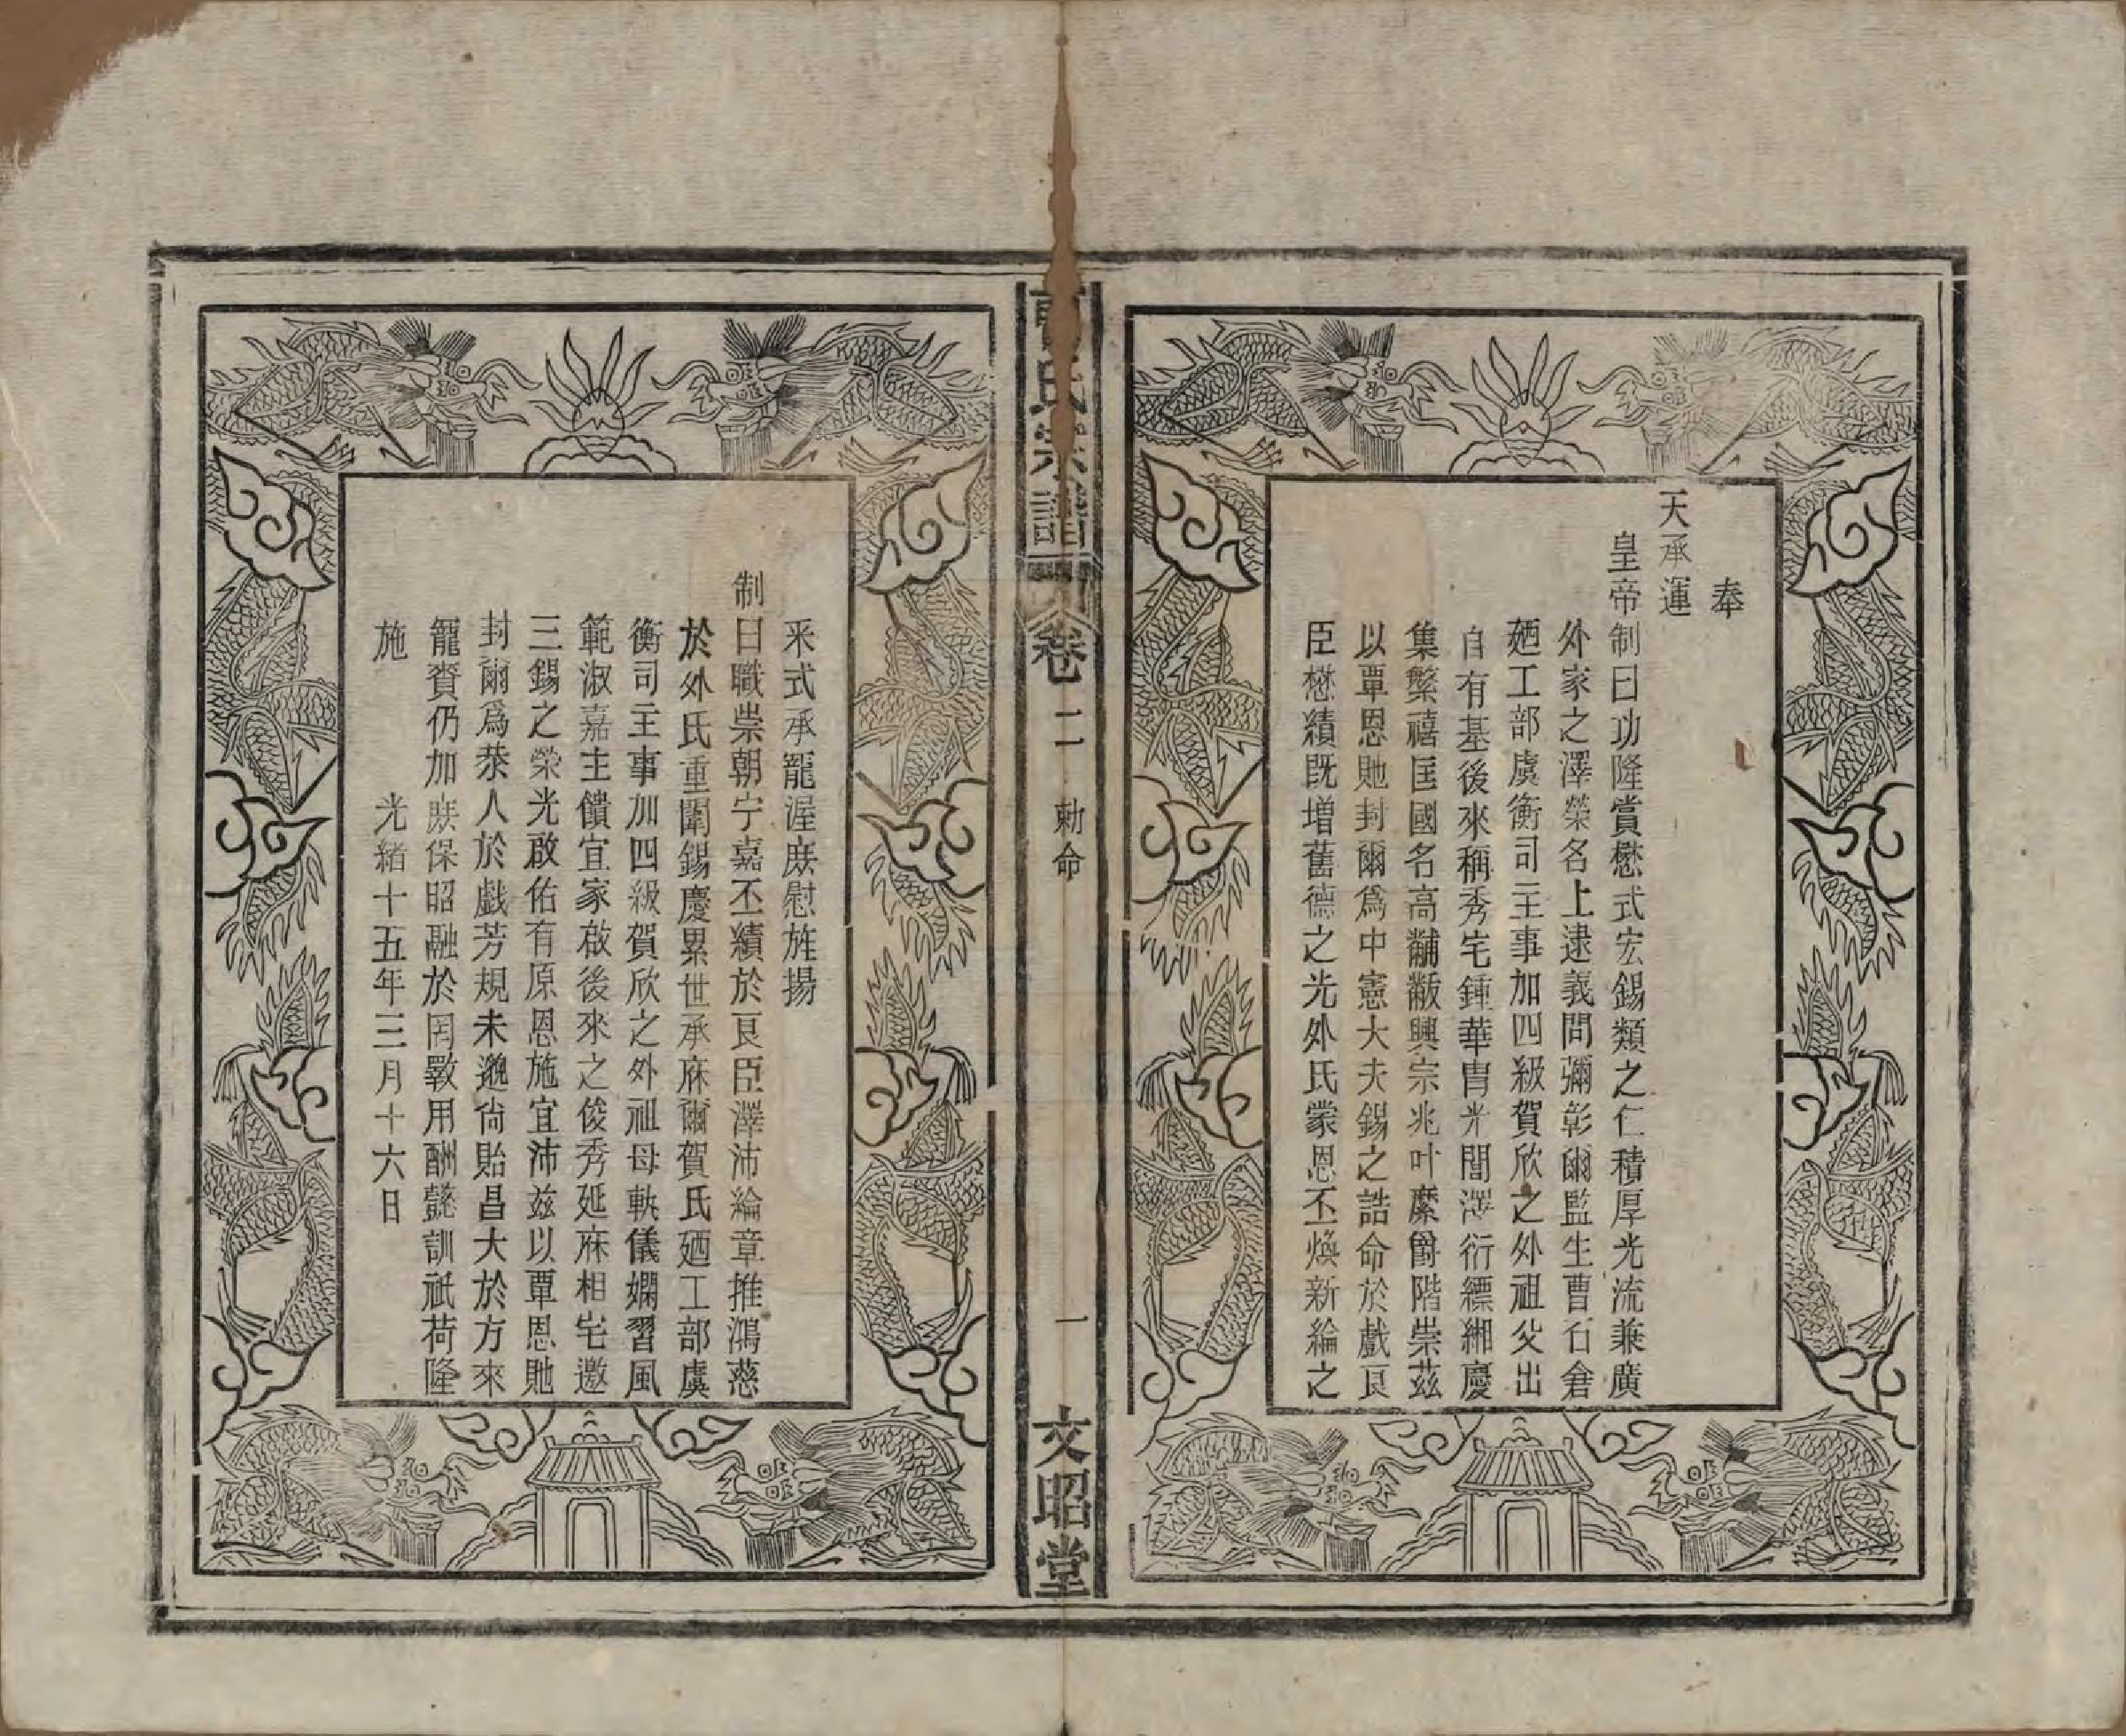 奉
天承運
皇帝制曰功隆賞懋式宏錫類之仁積厚光流兼廣
外家之澤榮名上逮義問彌彰爾監生曹石倉
廼工部虞衡司主事加四級賀欣之外祖父出
自有基後來稱秀宅鍾華冑光閭澤衍縹緗慶
集繁禧匡國名高黼黻興宗兆叶縻爵階崇茲
以覃恩貤封爾爲中憲大夫錫之誥命於戲良
臣懋績既增舊德之光外氏蒙恩丕煥新綸之
氏宗譜 卷二 勅命 一 文昭堂
釆式承寵渥庶慰旌揚
制曰職崇朝宁嘉丕績於良臣澤沛綸章推鴻慈
於外氏重闈錫慶累世承庥爾賀氏廼工部虞
衡司主事加四級賀欣之外祖母軌儀嫻習風
範淑嘉主饋宜家啟後來之俊秀延庥相宅邀
三錫之榮光啟佑有原恩施宜沛茲以覃恩貤
封爾爲恭人於戲芳規未邈尙貽昌大於方來
寵賚仍加庶保昭融於罔斁用酬懿訓祇荷隆
施 光緒十五年三月十六日